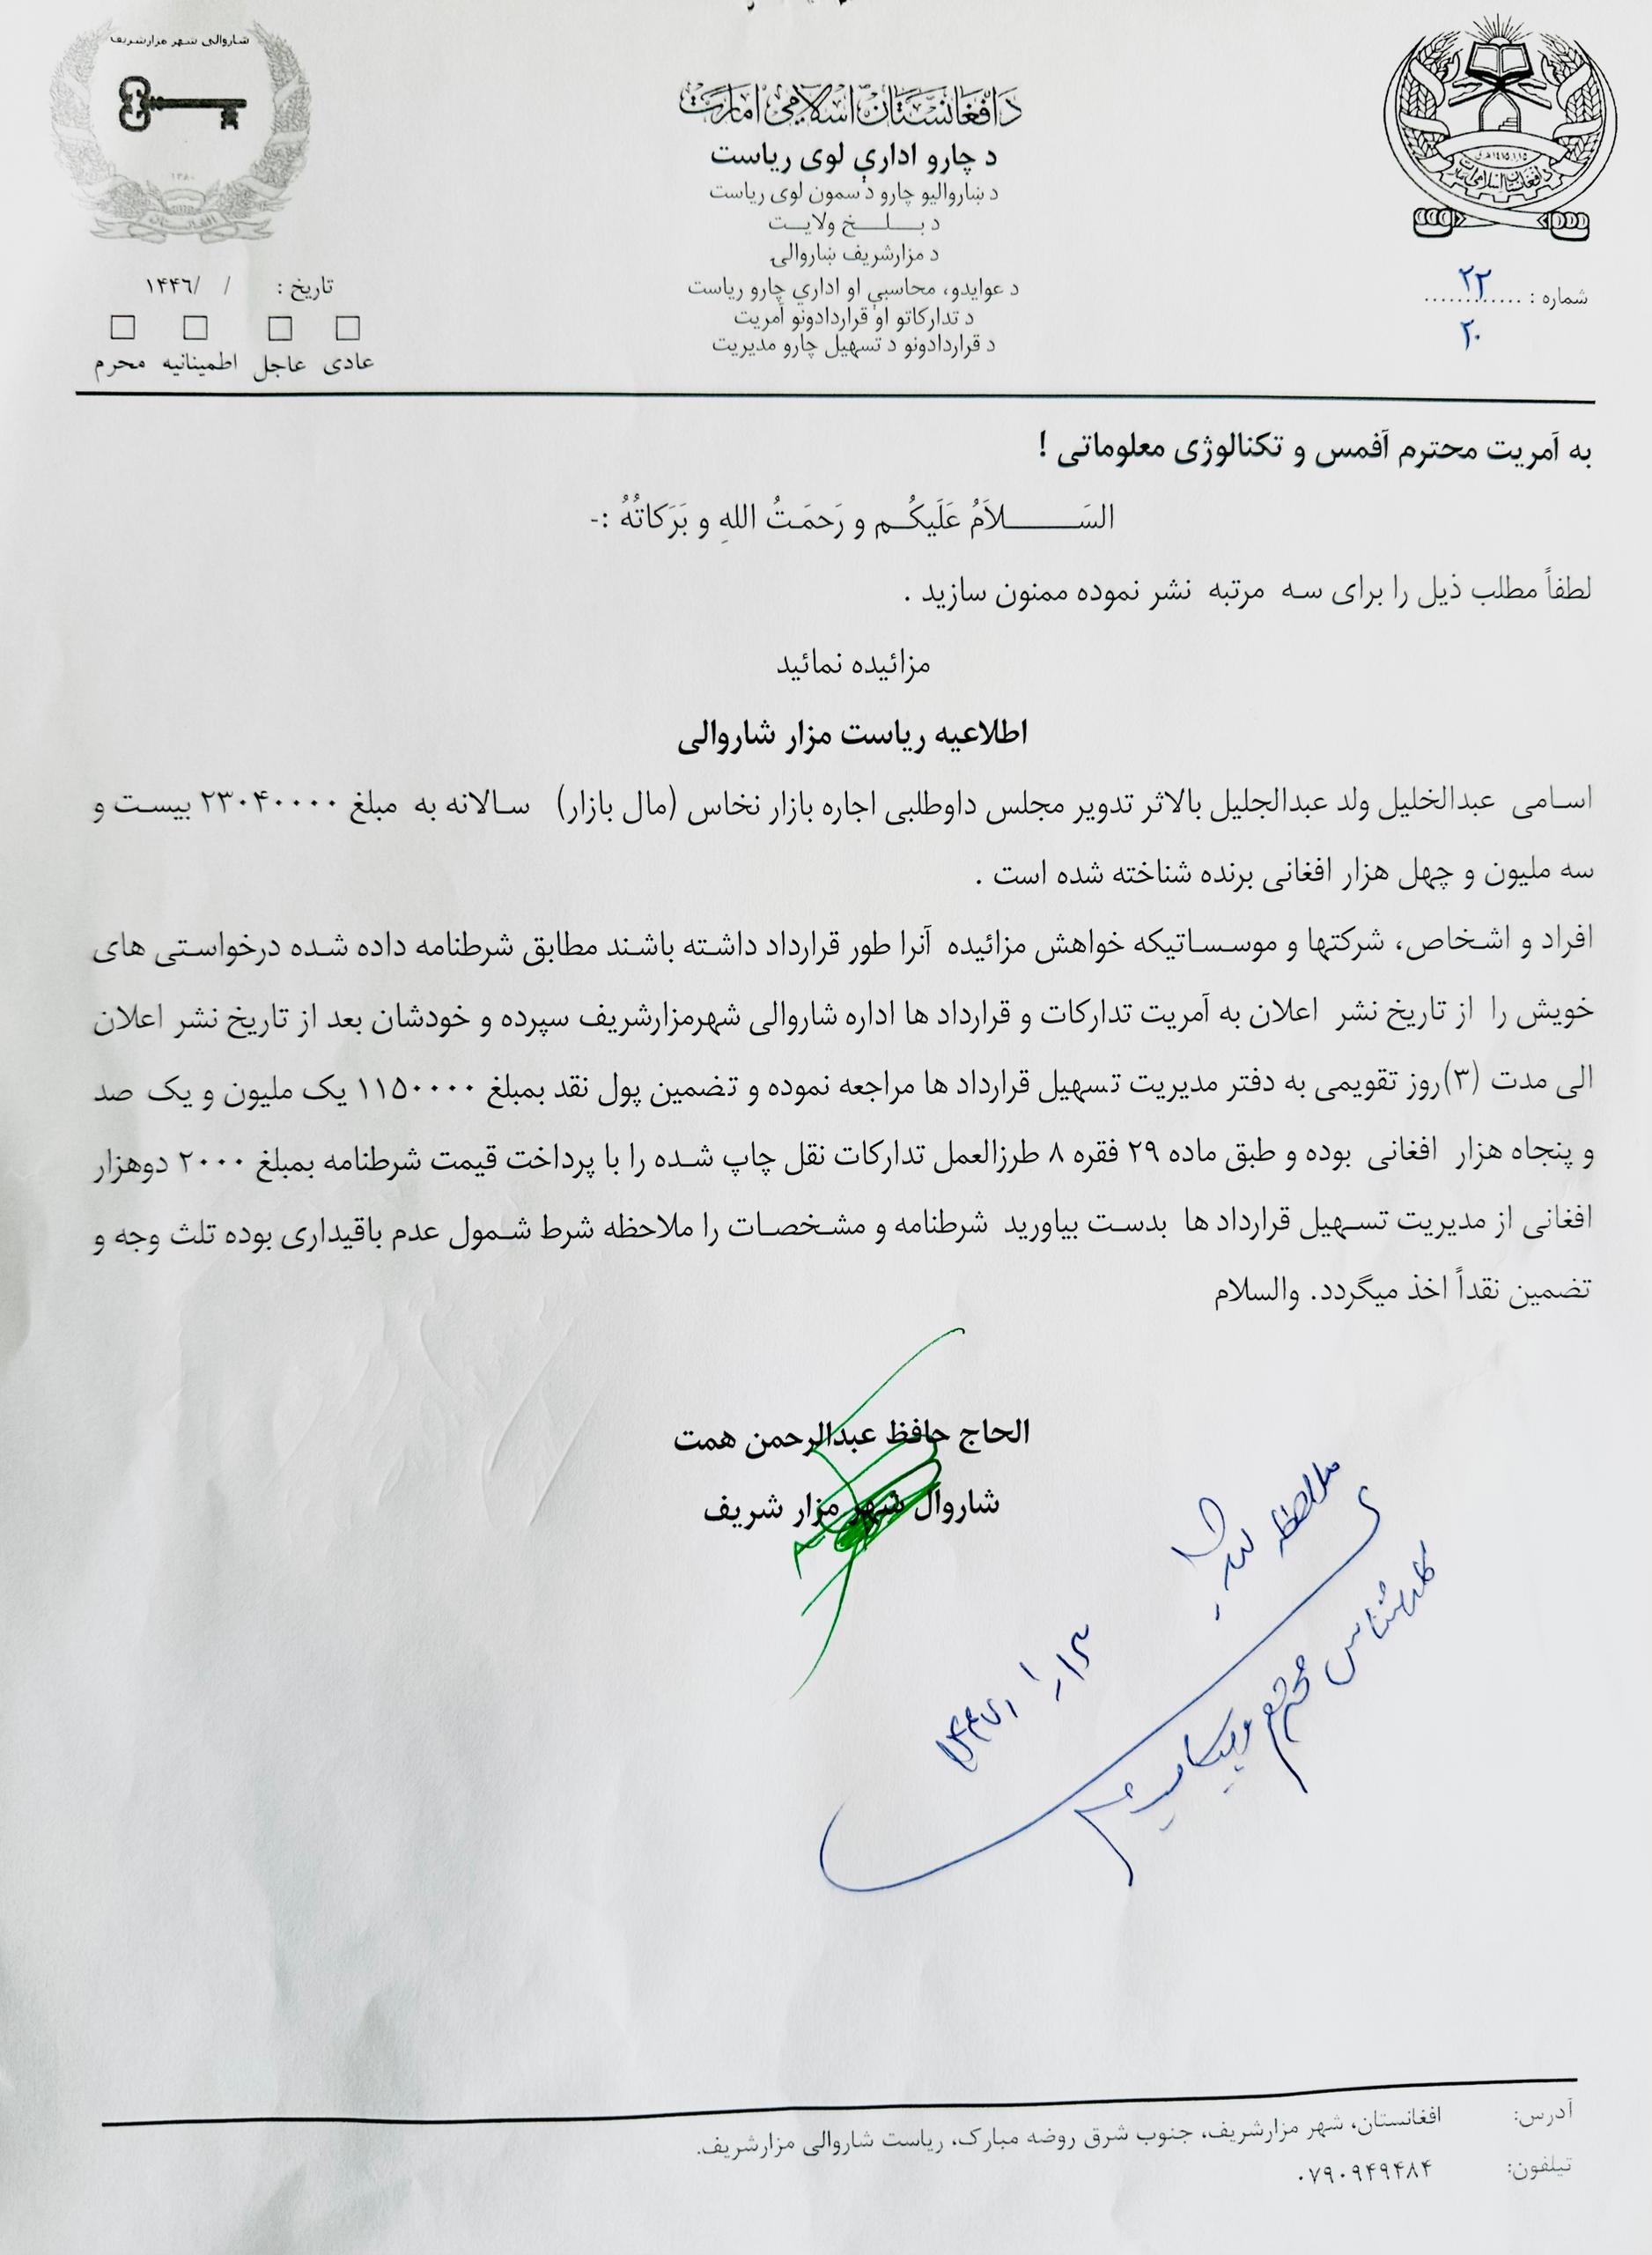 شاروالی شهر مزارشریف
۱۳۸۰
افغانستان
د افغانستان اسلامي امارت
د چارو ادارې لوی ریاست
د ښاروالیو چارو د سمون لوی ریاست
د بــلــخ ولایــت
د مزارشریف ښاروالۍ
د عوایدو، محاسبې او اداري چارو ریاست
د تدارکاتو او قراردادونو آمریت
د قراردادونو د تسهیل چارو مدیریت
شماره : ............
۲۲
۲۰
تاریخ : / /۱۴۴۶
عادی عاجل اطمینانیه محرم
به آمریت محترم آفمس و تکنالوژی معلوماتی !
السَـــــــلاَمُ عَلَیکُــم و رَحمَـتُ اللهِ و بَرَکاتُهُ :-
لطفاً مطلب ذیل را برای سه مرتبه نشر نموده ممنون سازید .
مزائیده نمائید
اطلاعیه ریاست مزار شاروالی
اسامی عبدالخلیل ولد عبدالجلیل بالاثر تدویر مجلس داوطلبی اجاره بازار نخاس (مال بازار) سالانه به مبلغ ۲۳۰۴۰۰۰۰ بیست و
سه ملیون و چهل هزار افغانی برنده شناخته شده است .
افراد و اشخاص، شرکتها و موسساتیکه خواهش مزائیده آنرا طور قرارداد داشته باشند مطابق شرطنامه داده شده درخواستی های
خویش را از تاریخ نشر اعلان به آمریت تدارکات و قرارداد ها اداره شاروالی شهرمزارشریف سپرده و خودشان بعد از تاریخ نشر اعلان
الی مدت (۳)روز تقویمی به دفتر مدیریت تسهیل قرارداد ها مراجعه نموده و تضمین پول نقد بمبلغ ۱۱۵۰۰۰۰ یک ملیون و یک صد
و پنجاه هزار افغانی بوده و طبق ماده ۲۹ فقره ۸ طرزالعمل تدارکات نقل چاپ شده را با پرداخت قیمت شرطنامه بمبلغ ۲۰۰۰ دوهزار
افغانی از مدیریت تسهیل قرارداد ها بدست بیاورید شرطنامه و مشخصات را ملاحظه شرط شمول عدم باقیداری بوده تلث وجه و
تضمین نقداً اخذ میگردد. والسلام
الحاج حافظ عبدالرحمن همت
شاروال شهر مزار شریف
ملاحظه شد
کارشناس محترم
آدرس: افغانستان، شهر مزارشریف، جنوب شرق روضه مبارک، ریاست شاروالی مزارشریف.
تیلفون: ۰۷۹۰۹۴۹۴۸۴